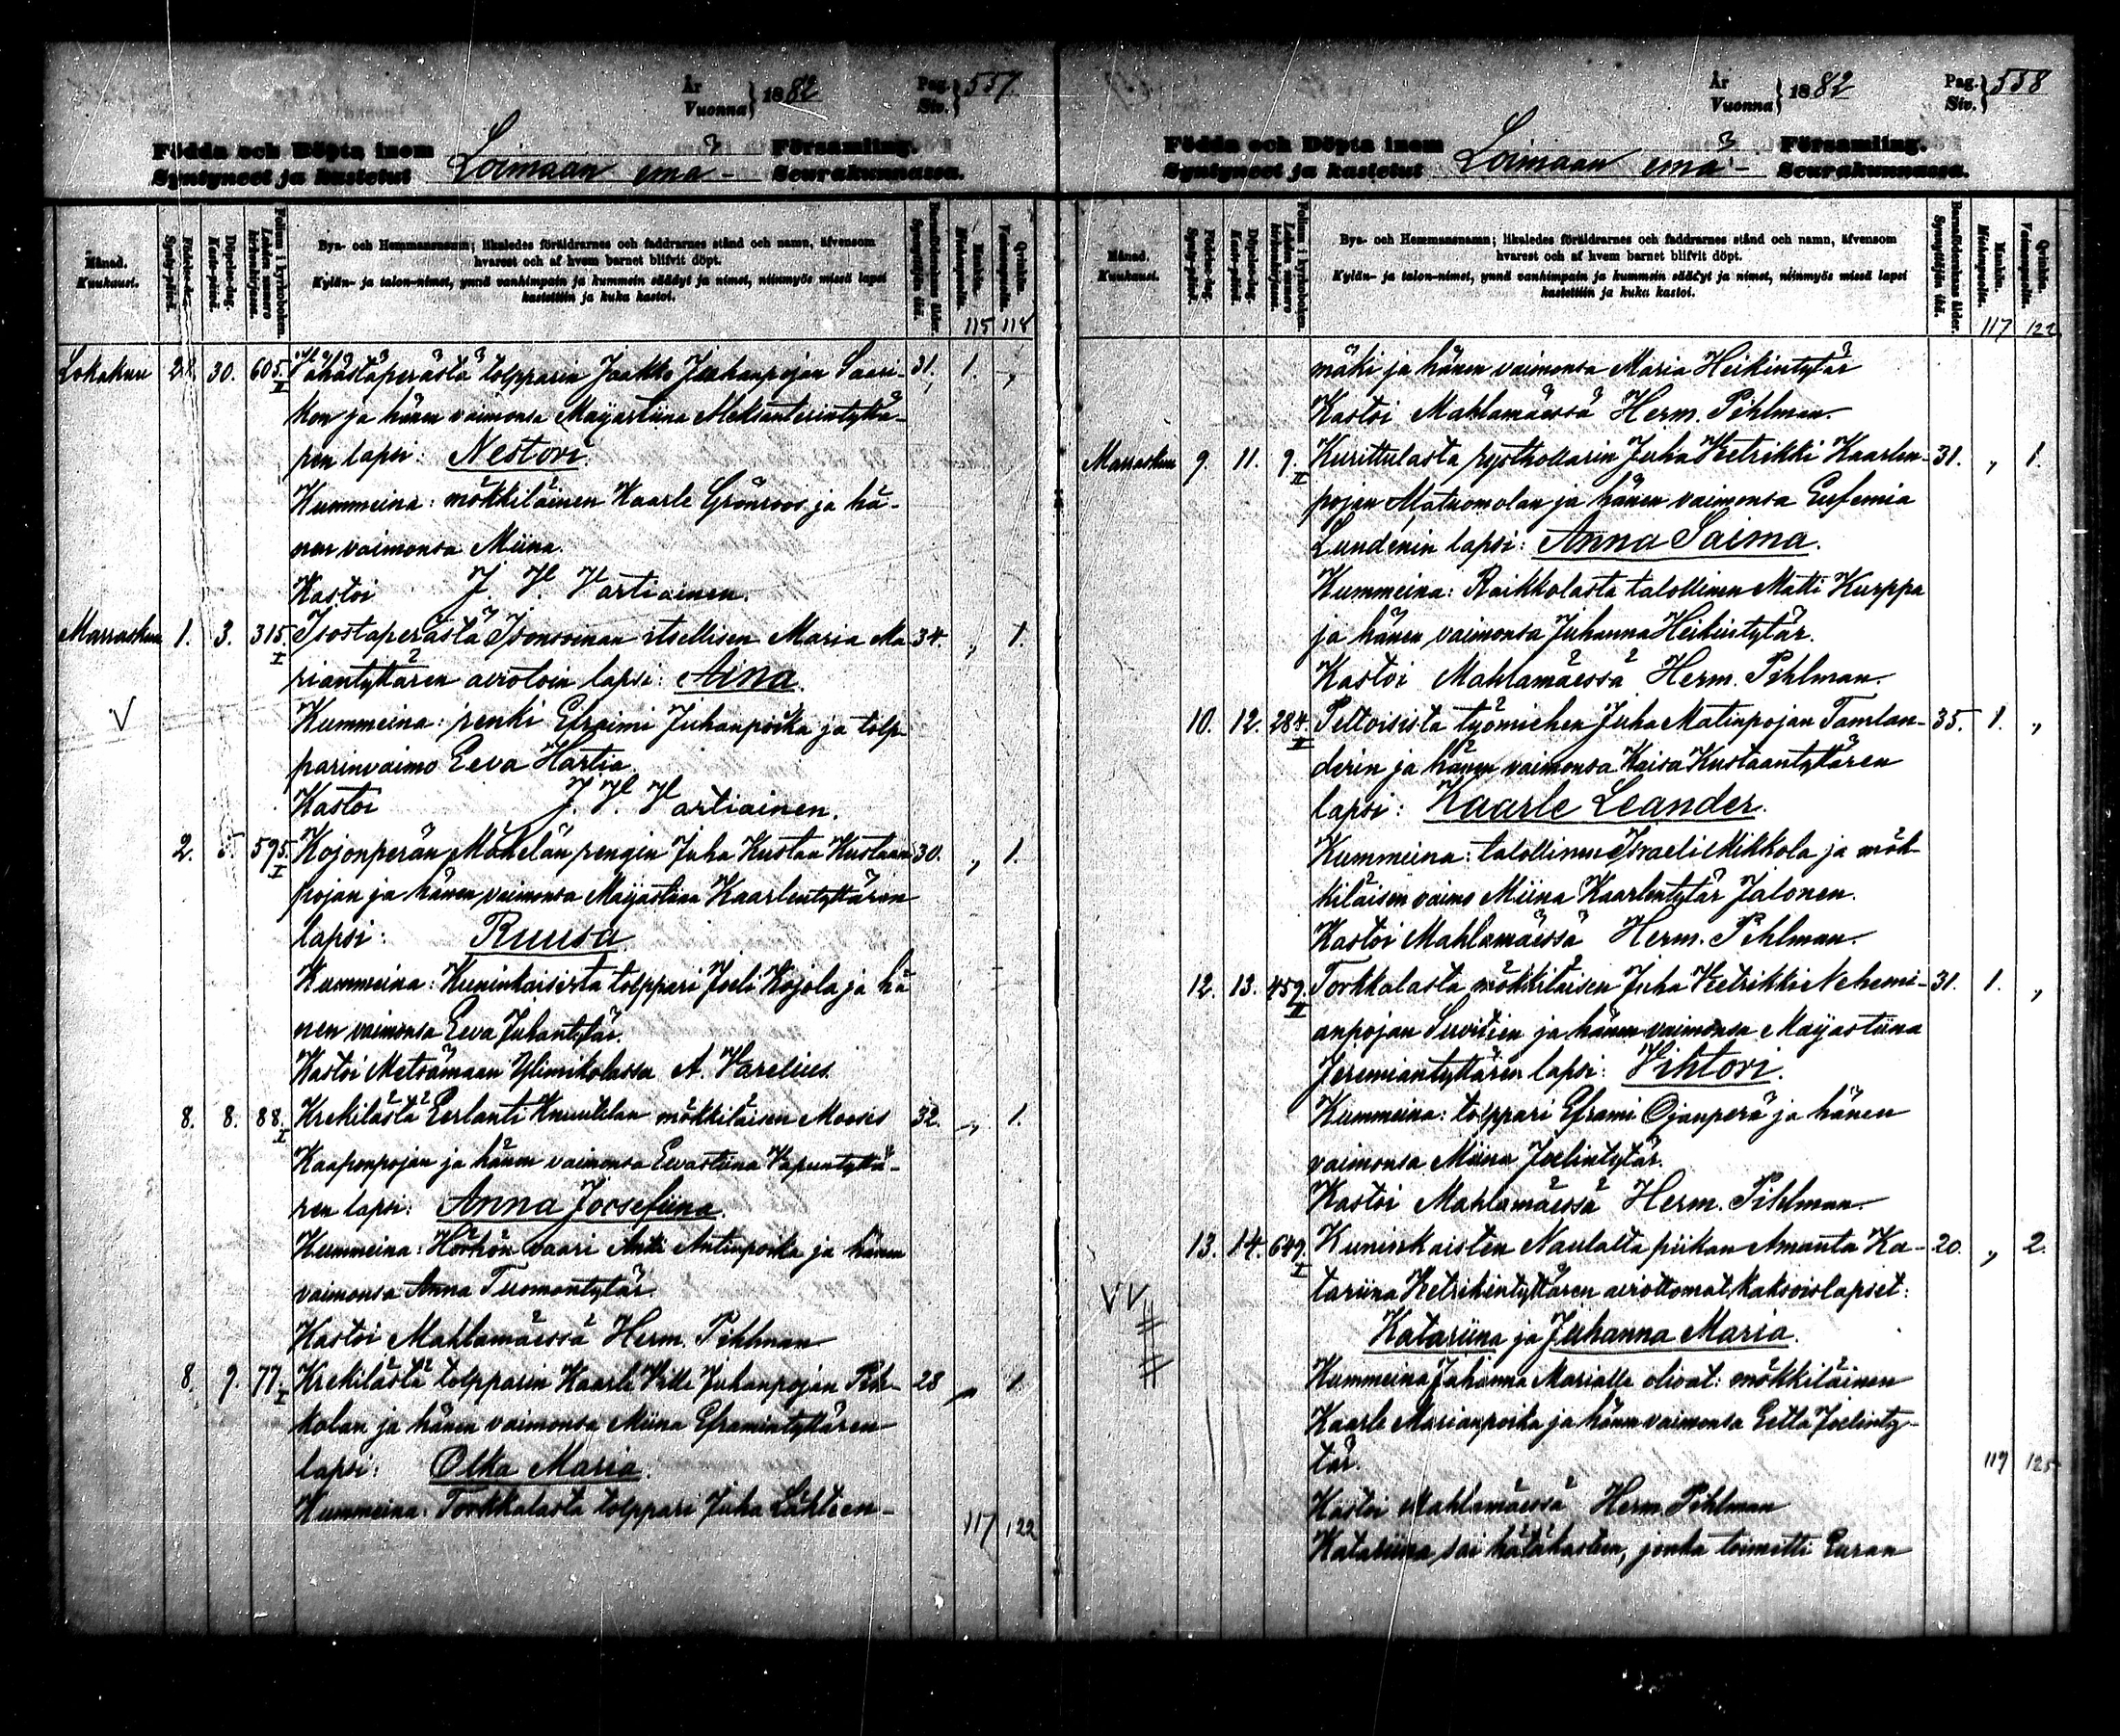 År
Vuonna } 1882 Pag. Siv. } 557.
Födda och Döpta inom Loimaan emä- Församling.
Syntyneet ja kastetut Seurakunnassa.
Månad. Kuukausi.
Födelse-dag. Synty-päivä.
Döpelse-dag. Kaste-päivä.
Folium i kyrkoboken. Lehden numero kirkonkirjassa.
Bya- och Hemmansnamn; likaledes föräldrarnes och faddrarnes stånd och namn, äfvensom
hvarest och af hvem barnet blifvit döpt.
Kylän- ja talon-nimet, ynnä vanhimpain ja kummein säädyt ja nimet, niinmyös missä lapsi
kastettiin ja kuka kastoi.
Barnföderskans ålder. Synnyttäjän ikä.
Mankön. Miehenpuolia.
Qvinkön. Vaimonpuolia.
115 118
Lokakuu 28. 30. 605. I Vähästäperästä tolpparin Jaakko Juhanpojan Saari- 31. 1. „
ken ja hänen vaimonsa Maijastiina Aleksanterintyttä-
ren lapsi: Nestori.
Kummeina: mökkiläinen Kaarle Grönroos ja hä-
nen vaimonsa Miina.
Kastoi J. H. Vartiainen.
Marraskuu 1. 3. 315. I Isostaperästä Isonsoinaan itsellisen Maria Ma 34. „ 1.
riantyttären avioton lapsi: Aina.
Kummeina: renki Efraimi Juhanpoika ja tolp-
parinvaimo Eeva Hartia.
Kastoi J. H. Vartiainen.
2. 5. 595. I Kojonperän Mäkelän rengin Juha Kustaa Kustaan 30. „ 1.
pojan ja hänen vaimonsa Maijastiina Kaarlentyttären
lapsi: Ruusa
Kummeina: Kuninkaisista tolppari Joeli Kojola ja hä
nen vaimonsa Eeva Juhantytär.
Kastoi Metsämaan Ylimikolassa A. Varelius.
8. 8. 88. I Krekilästä Eerlanti Knuutilan mökkiläisen Mooses 32. „ 1.
Kaaponpojan ja hänen vaimonsa Eevastiina Vapuntyttä-
ren lapsi: Anna Joosefiina.
Kummeina: Höökön vaari Antti Antinpoika ja hänen
vaimonsa Anna Tuomontytär.
Kastoi Mahlamäessä Herm. Pihlman
8. 9. 77. I Krekilästä tolpparin Kaarle Ville Juhanpojan Pek- 28 „ 1.
kolan ja hänen vaimonsa Miina Eframintyttären
lapsi: Olka Maria.
Kummeina: Torkkalasta tolppari Juha Lähteen-
117 122
År
Vuonna } 1882 Pag. Siv. } 558
Födda och Döpta inom Loimaan emä- Församling.
Syntyneet ja kastetut Seurakunnassa.
Månad. Kuukausi.
Födelse-dag. Synty-päivä.
Döpelse-dag. Kaste-päivä.
Folium i kyrkoboken. Lehden numero kirkonkirjassa.
Bya- och Hemmansnamn; likaledes föräldrarnes och faddrarnes stånd och namn, äfvensom
hvarest och af hvem barnet blifvit döpt.
Kylän- ja talon-nimet, ynnä vanhimpain ja kummein säädyt ja nimet, niinmyös missä lapsi
kastettiin ja kuka kastoi.
Barnföderskans ålder. Synnyttäjän ikä.
Mankön. Miehenpuolia.
Qvinkön. Vaimonpuolia.
117 122
mäki ja hänen vaimonsa Maria Heikintytär
Kastoi Mahlamäessä Herm. Pihlman.
Marraskuu 9. 11. 9. II Kurittulasta rysthollarin Juha Vetrikki Kaarlen- 31. „ 1.
pojan Matuomolan ja hänen vaimonsa Eufemia
Lundénin lapsi: Anna Saima.
Kummeina: Raikkolasta talollinen Matti Kurppa
ja hänen vaimonsa Juhanna Heikintytär.
Kastoi Mahlamäessä Herm. Pihlman.
10. 12. 284. II Peltoisista työmiehen Juha Matinpojan Tamlan- 35. 1. „
derin ja hänen vaimonsa Kaisa Kustaantyttären
lapsi: Kaarle Leander.
Kummeina: talollinen Israeli Mikkola ja mök-
kiläisen vaimo Miina Kaarlentytär Jalonen.
Kastoi Mahlamäessä Herm. Pihlman.
12. 13. 459. II Torkkalasta mökkiläisen Juha Vetrikki Nehemi- 31. 1. „
anpojan ja hänen vaimonsa Maijastiina
Jeremiantyttären lapsi: Vihtori.
Kummeina: tolppari Eframi Ojanperä ja hänen
vaimonsa Miina Joelintytär.
Kastoi Mahlamäessä Herm. Pihlman.
13. 14. 649. I Kuninkaisten Naulalta piikan Amanta Ka- 20. „ 2.
tariina Vetrikintyttären aviottomat kaksoislapset:
Katariina ja Juhanna Maria.
Kummeina Juhanna Marialle olivat: mökkiläinen
Kaarle Marianpoika ja hänen vaimonsa Eetla Joelinty-
tär.
119 125
Kastoi Mahlamäessä Herm. Pihlman
Katariina sai hätäkasteen, jonka toimitti Euran